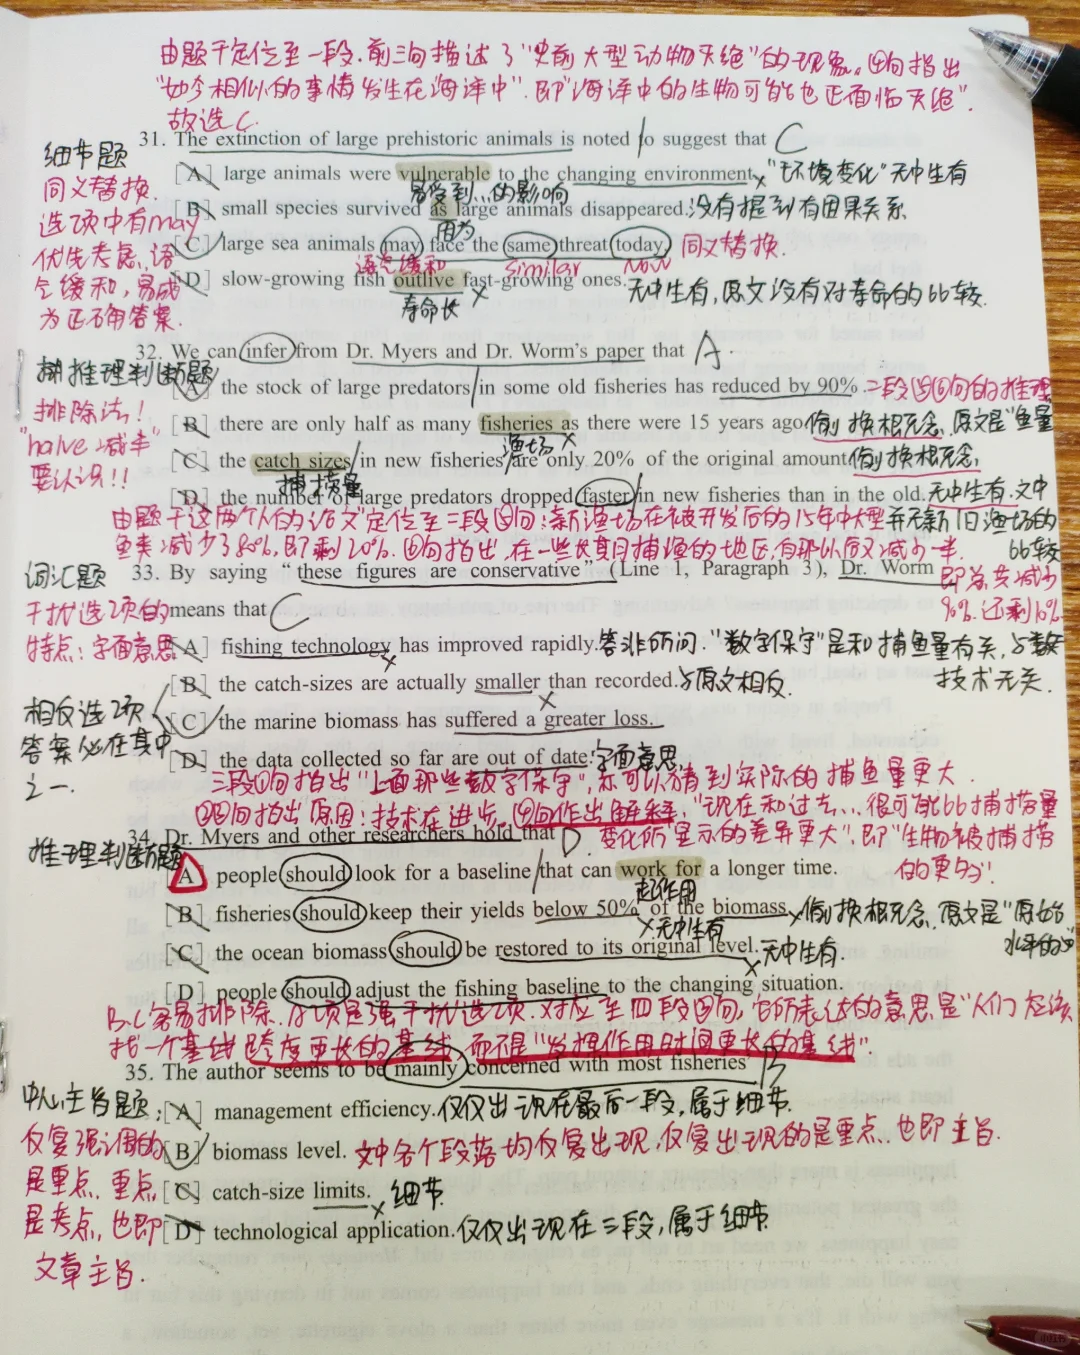 由题干定位至一段.前三句描述了"史前大型动物灭绝"的现象。④句指出
"如今相似的事情发生在海洋中".即"海洋中的生物可能也正面临灭绝".
故选C.
31. The extinction of large prehistoric animals is noted to suggest that C
细节题
[A] large animals were vulnerable to the changing environment. × "环境变化"无中生有
同义替换.
易受到...的影响
选项中有may
[B] small species survived as large animals disappeared. 没有提到有因果关系
因为
[C] large sea animals may face the same threat today. 同义替换.
优先考虑,语
语气缓和 similar now
气缓和,易成
[D] slow-growing fish outlive fast-growing ones. × 无中生有,原文没有对寿命的比较.
为正确答案.
寿命长
32. We can infer from Dr. Myers and Dr. Worm's paper that A.
推理判断题
[A] the stock of large predators in some old fisheries has reduced by 90%. 二段⑤⑥句的推理
排除法!
[B] there are only half as many fisheries as there were 15 years ago. 偷换概念,原文是"鱼量
"halve 减半"
渔场 ×
要认识!!
[C] the catch sizes in new fisheries are only 20% of the original amount. 偷换概念.
捕捞量
[D] the number of large predators dropped faster in new fisheries than in the old. 无中生有.文中
并无新旧渔场的
比较
由题干这两个人的论文定位至二段⑤句:新渔场在被开发后的15年中大型
鱼类减少了80%,即剩20%.⑥句指出,在一些长期捕渔的地区,有那以后又减少一半.
即总共减少
90%.还剩10%.
33. By saying "these figures are conservative" (Line 1, Paragraph 3), Dr. Worm
means that C
词汇题
干扰选项的
特点:字面意思
[A] fishing technology has improved rapidly. × 答非所问."数字保守"是和捕鱼量有关,与
技术无关.
[B] the catch-sizes are actually smaller than recorded. × 与原文相反.
相反选项,
[C] the marine biomass has suffered a greater loss.
答案必在其中
[D] the data collected so far are out of date. 字面意思.
之一.
三段①句指出"上面那些数字保守",亦可以猜到实际的捕鱼量更大.
②③句指出原因:技术在进步.④句作出解释,"现在和过去...很可能比捕捞量
变化所显示的差异更大",即"生物被捕捞
的更多!"
34. Dr. Myers and other researchers hold that D.
推理判断题
[A] people should look for a baseline that can work for a longer time.
起作用
[B] fisheries should keep their yields below 50% of the biomass. × 偷换概念,原文是"原始
×无中生有
水平的50
[C] the ocean biomass should be restored to its original level. × 无中生有.
[D] people should adjust the fishing baseline to the changing situation.
B.C容易排除.A项是强干扰选项.对应至四段④句,它所表达的意思是"人们应该
找一个基线跨度更长的基线,而不是"发挥作用时间更长的基线"
35. The author seems to be mainly concerned with most fisheries' B
中心主旨题:
[A] management efficiency. 仅仅出现在最后一段,属于细节.
反复强调的
[B] biomass level. 文中各个段落均反复出现,反复出现的是重点.也即主旨.
是重点,重点
[C] catch-size limits. × 细节.
是考点,也即
[D] technological application. 仅仅出现在三段,属于细节.
文章主旨.